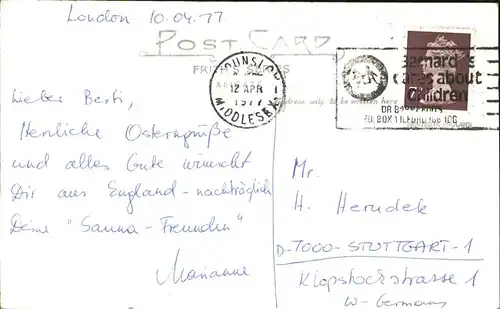 London 10.04.77
POST CARD
FRITH'S SERIES
HOUNSLOW
12 APR
1977
MIDDLESEX
Barnardo's
cares about
children
DR BARNARDO'S
PO BOX 1 ILFORD IG6 1QG
7
address only to be written here
Lieber Berti,
Herzliche Ostergrüße
und alles Gute wünscht
Dir aus England - nachträglich
Deine "Sauna-Freundin"
Marianne
Mr.
H. Herudek
D-7000-STUTTGART-1
Klopstockstrasse 1
W-Germany